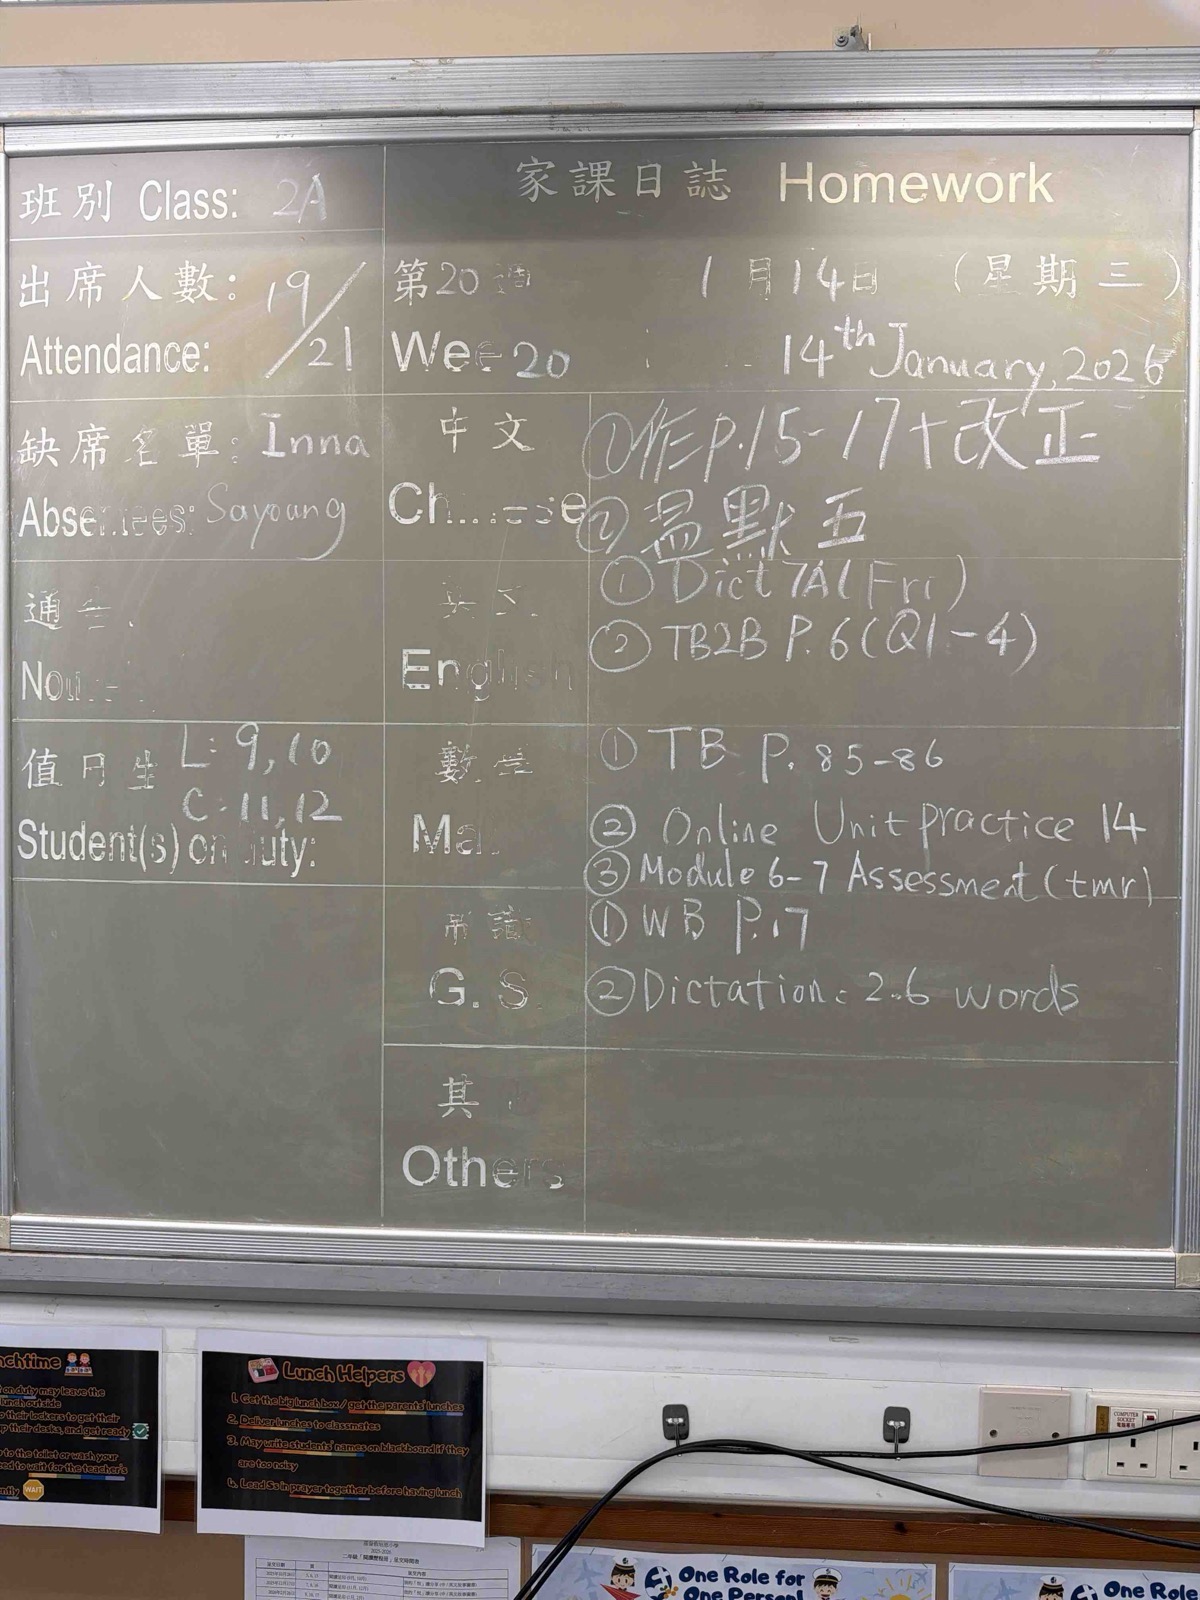 班別 Class: 2A
家課日誌 Homework
出席人數: 19/21
Attendance:
第20週 1月14日 (星期三)
Wee 20 14th January, 2026
缺席名單: Inna
Absentees: Sayoung
中文
Ch...ese
①作p.15-17+改正
②溫默五
通告
No
English
①Dict 7A (Fri)
②TB2B P.6 (Q1-4)
值日生 L: 9, 10
C: 11, 12
Student(s) on duty:
數學
Ma
①TB P. 85-86
②Online Unit practice 14
③Module 6-7 Assessment (tmr)
常識
G. S.
①WB P.17
②Dictation: 2.6 words
其
Others
nchtime
on duty may leave the
lunch outside
o their lockers to get their
p their desks, and get ready
to the toilet or wash your
ed to wait for the teacher's
ntly WAIT
Lunch Helpers
1. Get the big lunch box / get the parents' lunches
2. Deliver lunches to classmates
3. May write students' names on blackboard if they
are too noisy
4. Lead Ss in prayer together before having lunch
COMPUTER
SOCKET
電腦專用
2025-2026
One Role for
One Person!
One Role